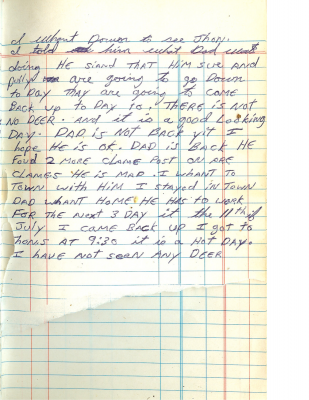 I whant Down to see Thon.
I told him what Dad was
doing HE siand THAT HIM SUE AND
pully are going to go Down
to DAY THAY are going to COME
BACK UP to DAY to. THERE IS NOT
NO DEER. And it is a good Looking
DAY. DAD is NOT BACK yit I
hope HE is OK. DAD is BACK HE
FOUD 2 MORE CLAME POST ON ARE
CLAMES HE is MAD. I WHANT to
TOWN with HIM I stayed in TOWN
DAD WHANT HOME HE HAS to WORK
FOR THE NEXT 3 DAY it the 11th of
July I CAME BACK UP I got to
THONS AT 9:30 it is A HOT DAY.
I HAVE NOT SEEN ANY DEER